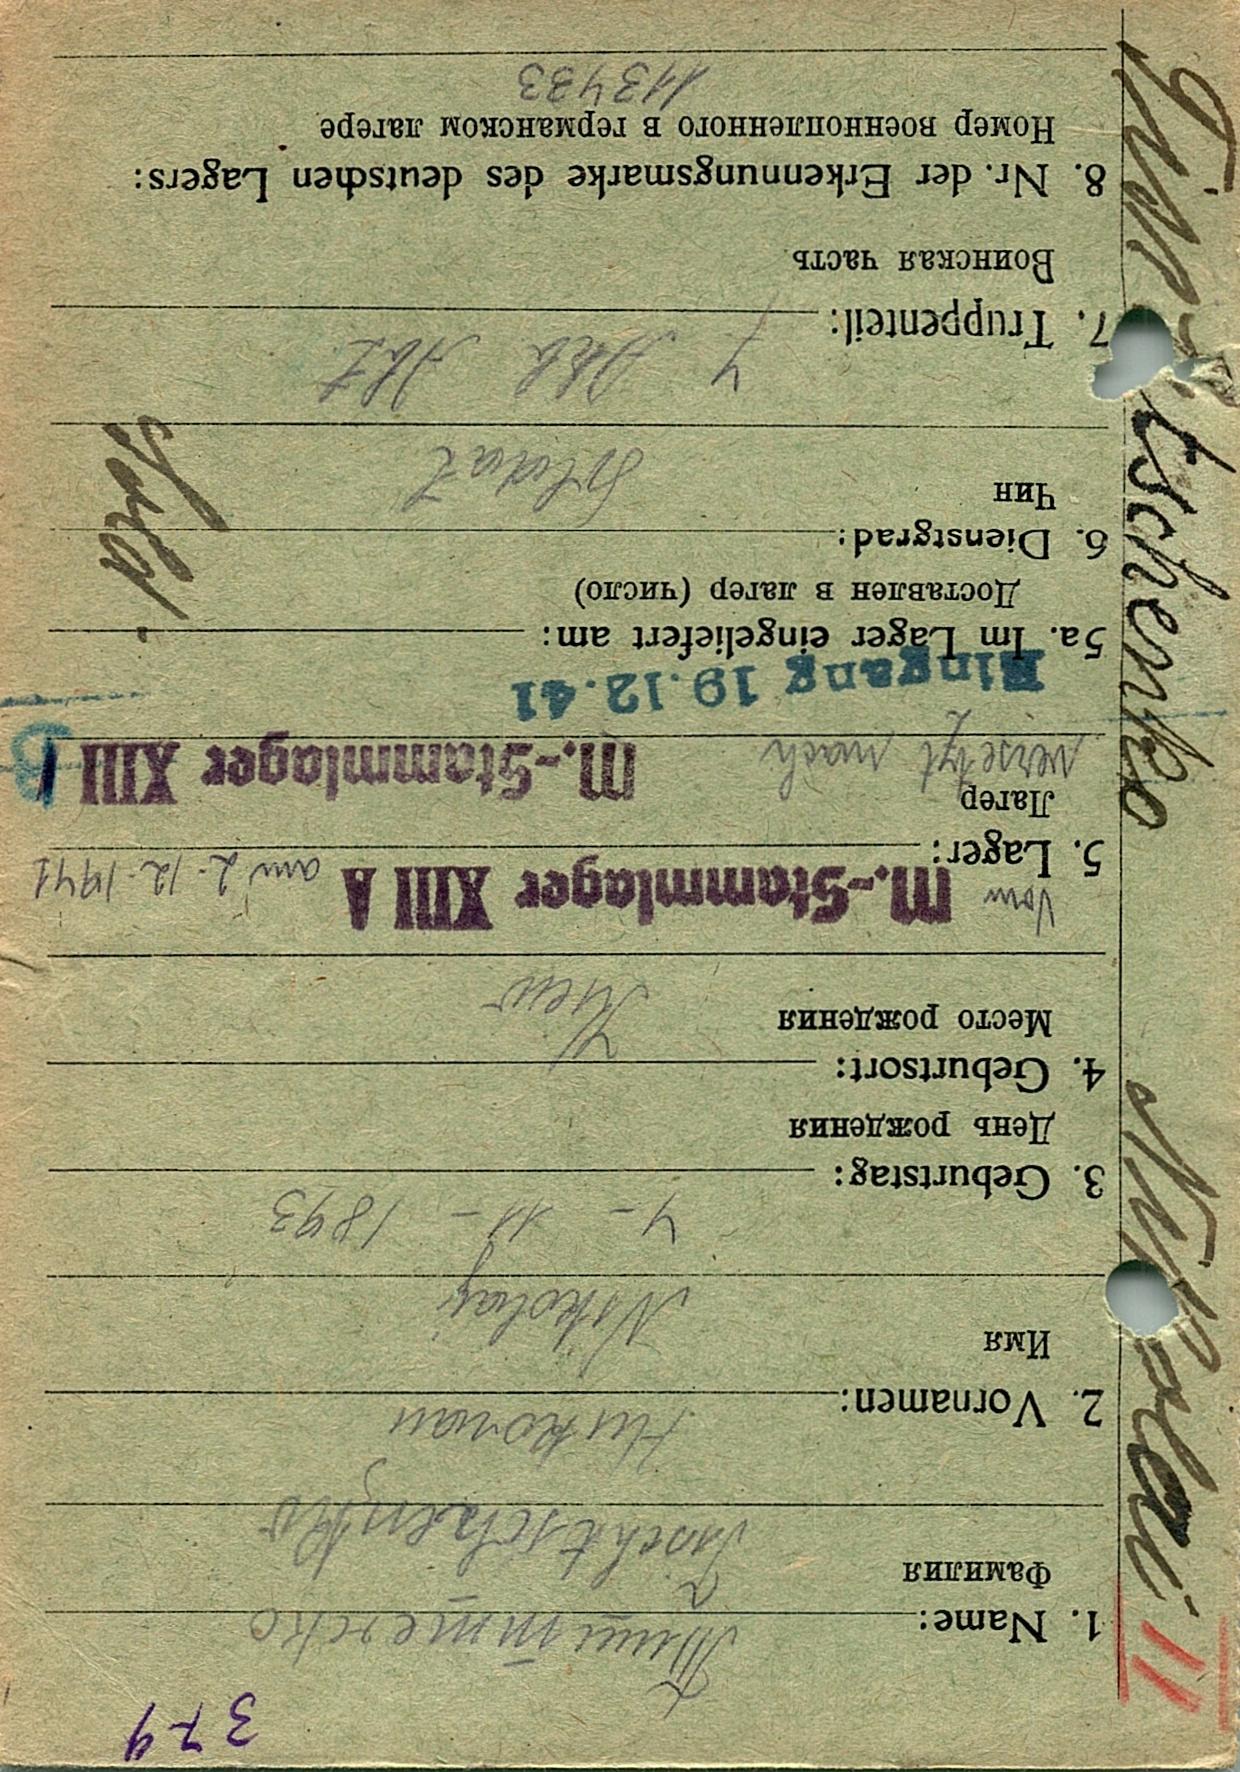 379
1. Name: Тимтченко
Фамилия
Tischtschenko
2. Vornamen: Nikolaj
Имя
3. Geburtstag: 4 - 11 - 1893
День рождения
4. Geburtsort: Kiew
Место рождения
Vom M.-Stammlager XIII A am 2.12.1941
5. Lager:
Лагер
versetzt nach M.-Stammlager XIII B
Eingang 19.12.41
5a. Im Lager eingeliefert am:
Доставлен в лагер (число)
6. Dienstgrad: Soldat
Чин
7. Truppenteil: 4
Воинская часть
8. Nr. der Erkennungsmarke des deutschen Lagers:
Номер военнопленного в германском лагере
113433
Sold.
Nikolai
II